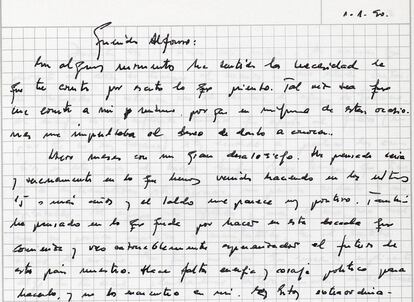 1.1.90.
Querido Alfonso:
En algunos momentos he sentido la necesidad de
que te conste por escrito lo que pienso. Tal vez sea que
me conste a mi mismo, porque en ninguna de estas ocasio-
nes me impulsaba el deseo de darlo a conocer.
Llevo meses con un gran desasosiego. He pensado seria
y serenamente en lo que hemos venido haciendo en los últimos
15 o más años y el saldo me parece muy positivo. También
he pensado en lo que queda por hacer en esta década que
comienza y veo extraordinariamente esperanzador el futuro de
este país nuestro. Hace falta energía y coraje político para
hacerlo, y no los encuentro en mi. extraordina-